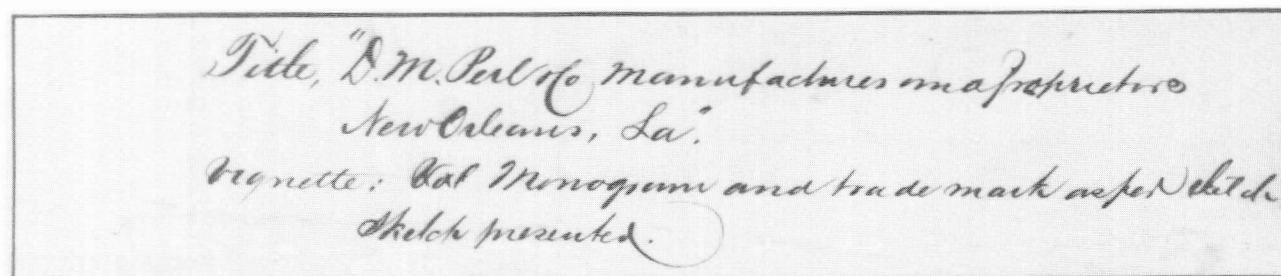 Title, "D. M. Perl & Co Manufactures and Proprietors
New Orleans, La".
Vignette: Monogram and trade mark as per sketch
sketch presented.